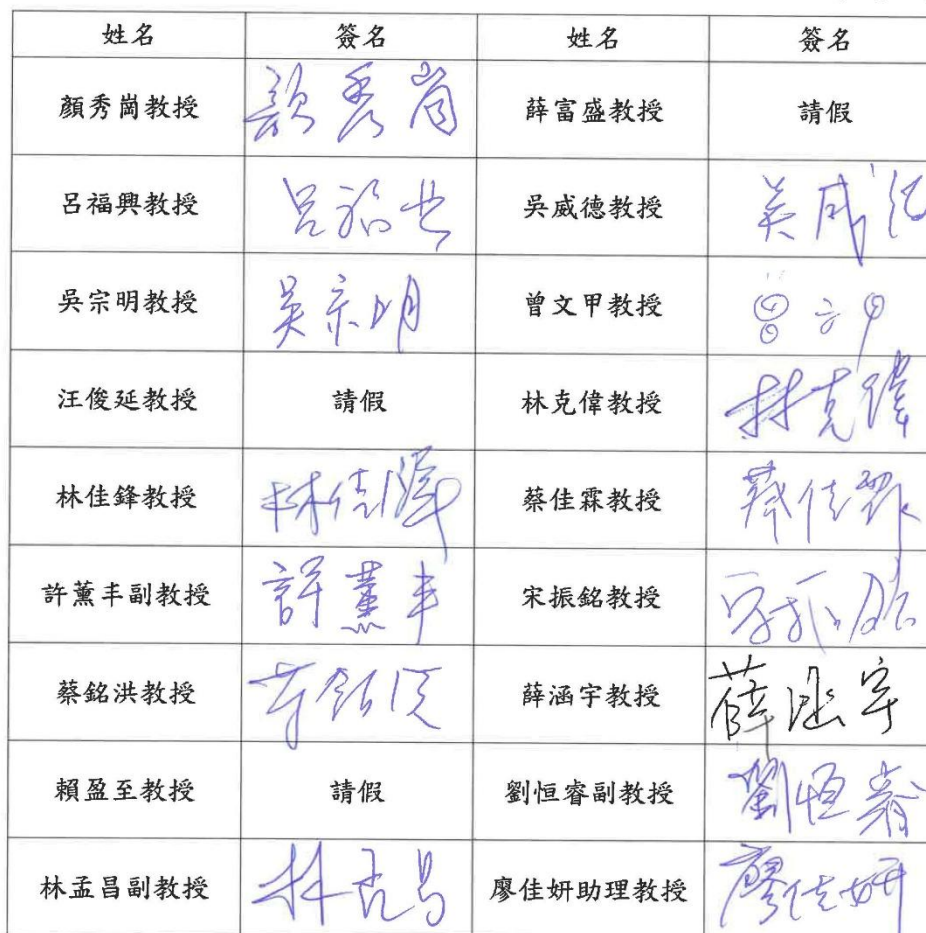 姓名 簽名 姓名 簽名
顏秀崗教授 顏秀崗 薛富盛教授 請假
呂福興教授 呂福興 吳威德教授 吳威德
吳宗明教授 吳宗明 曾文甲教授 曾文甲
汪俊延教授 請假 林克偉教授 林克偉
林佳鋒教授 林佳鋒 蔡佳霖教授 蔡佳霖
許薰丰副教授 許薰丰 宋振銘教授 宋振銘
蔡銘洪教授 蔡銘洪 薛涵宇教授 薛涵宇
賴盈至教授 請假 劉恒睿副教授 劉恒睿
林孟昌副教授 林孟昌 廖佳妍助理教授 廖佳妍